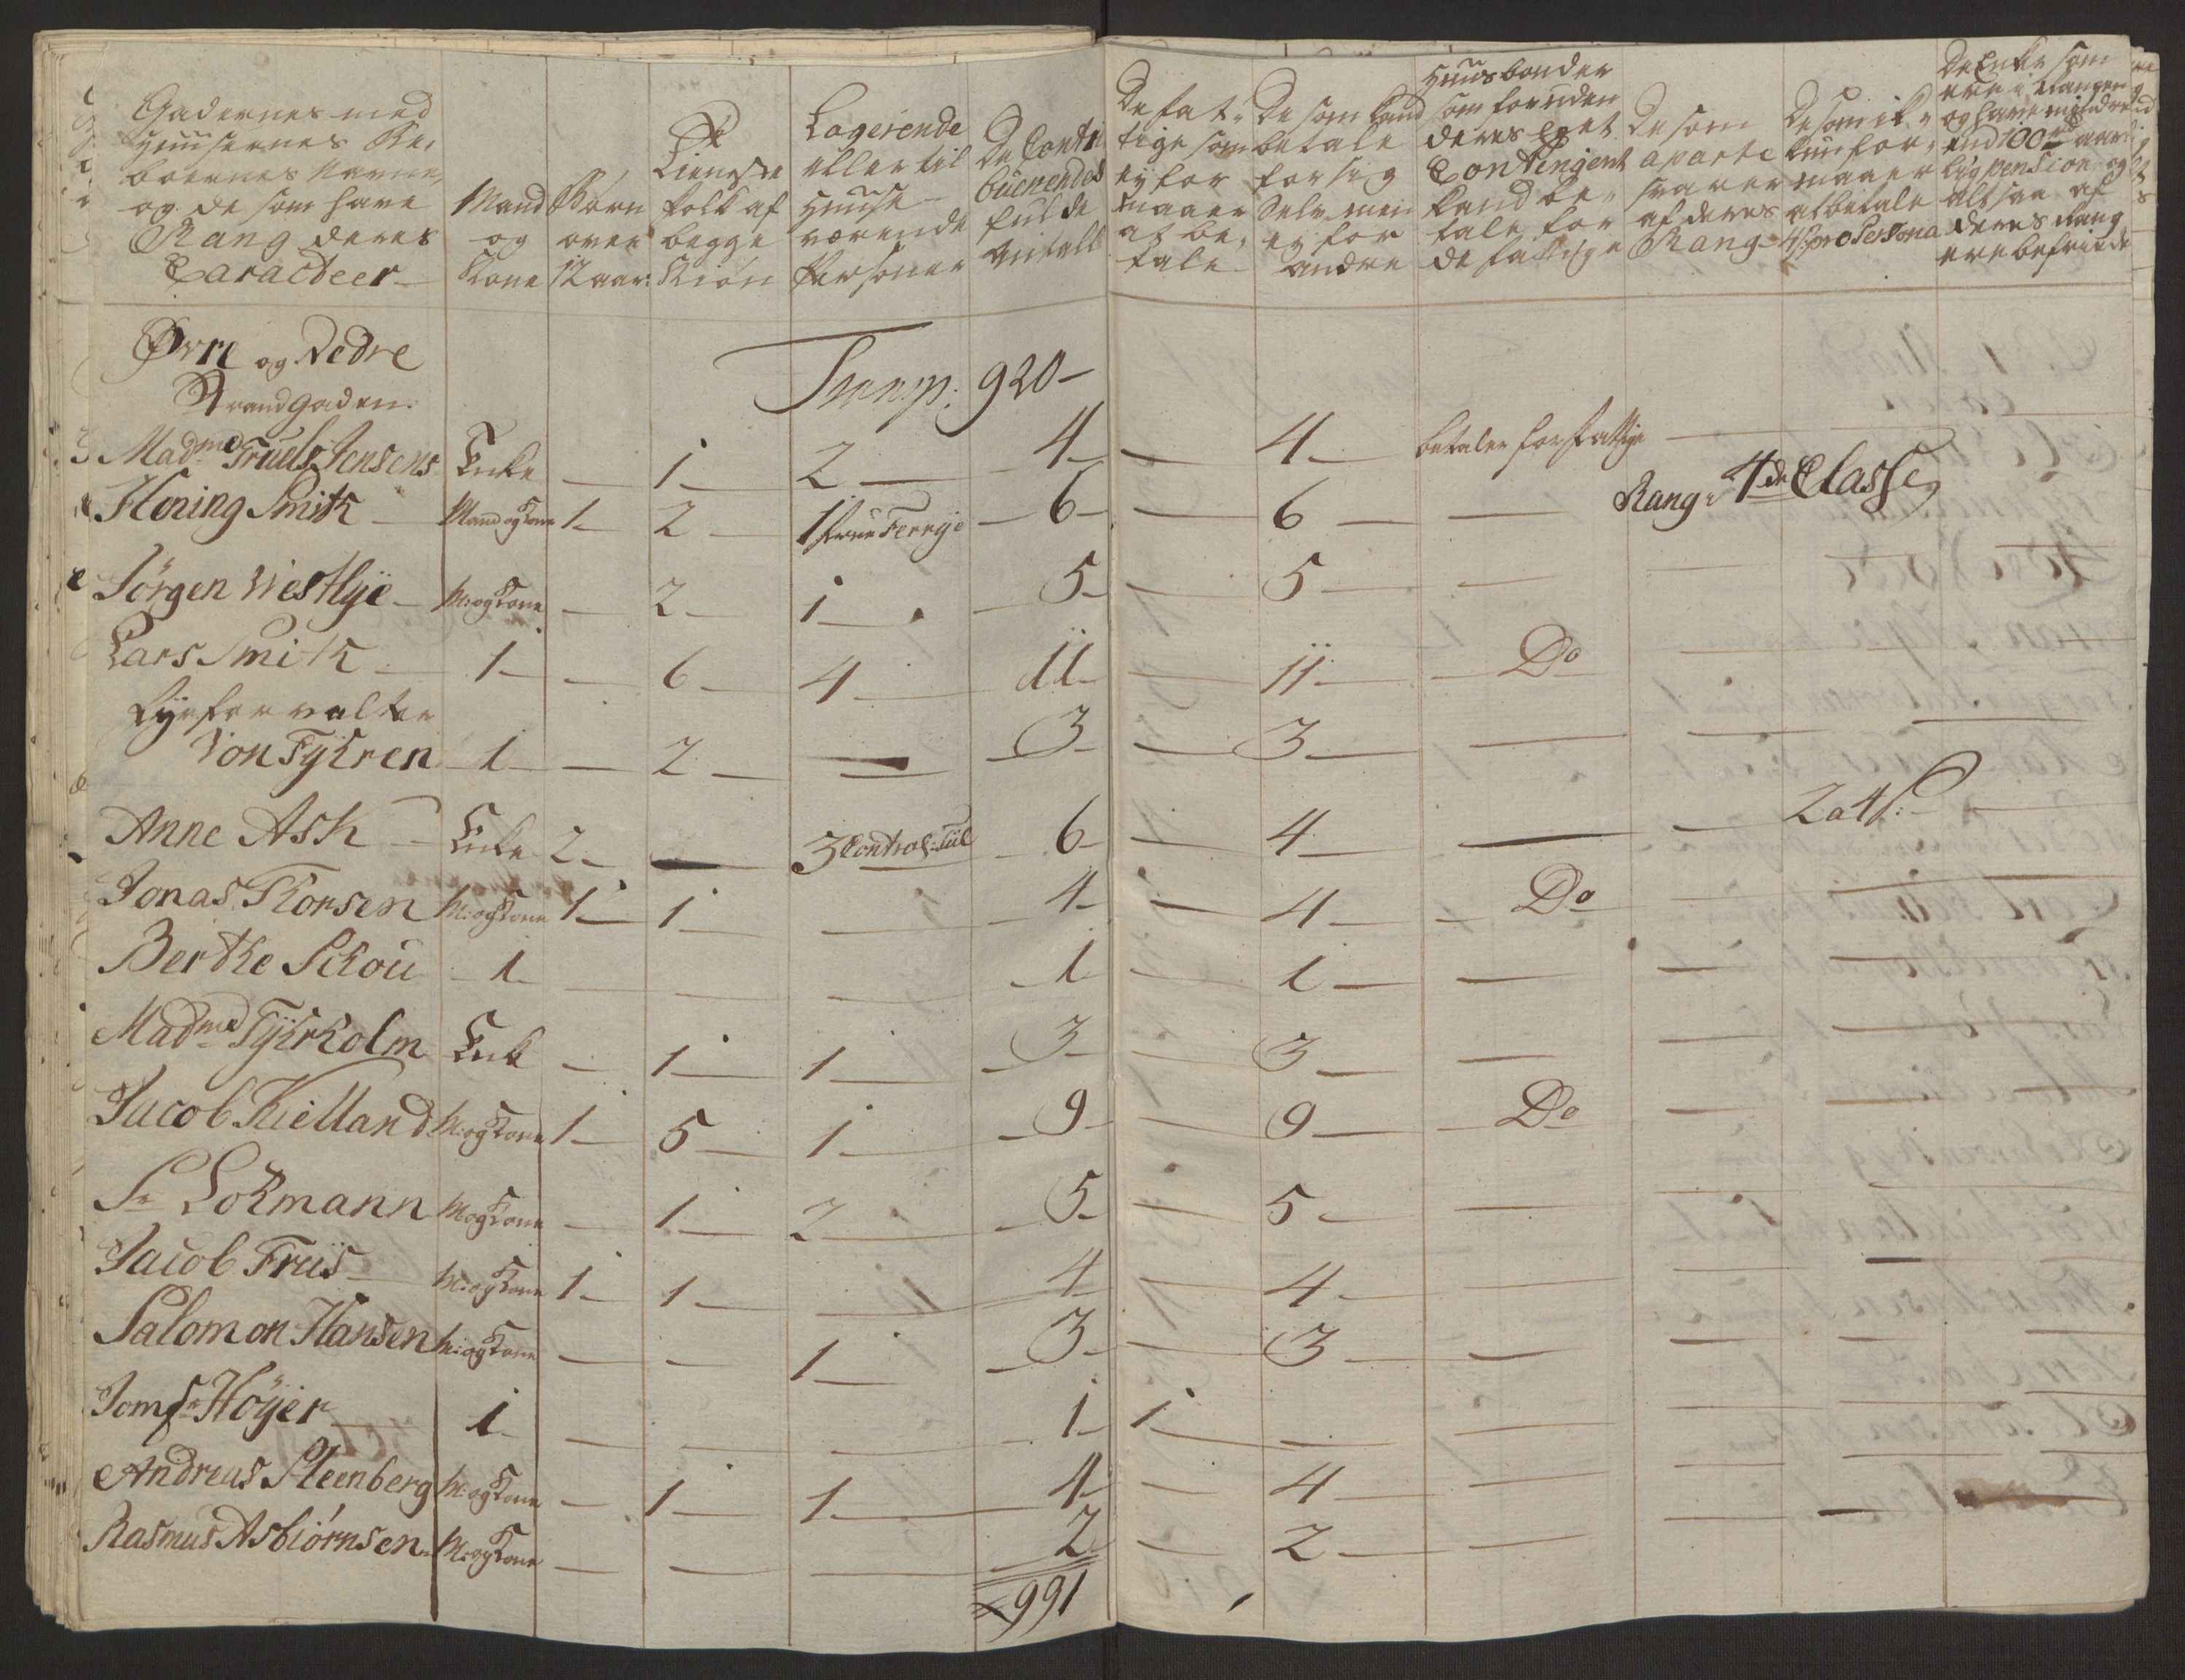 Gadernes med
Huusernes Be-
boernes Navne,
og de som have
Rang deres
Caracteer
Mand
og
Kone
Børn
over
12 aar:
Tieneste
folk af
begge
Kiøn
Logerende
eller til
Huuse
værende
Personer
De Contri
buerendes
fulde
Antall
De fat-
tige som
ey for
maaer
at be-
tale
De som kand
betale
for sig
Selv men
ey for
andre
Huusbonder
som foruden
deres Eget
Contingent
kand be-
tale for
de fattige
De som
aparte
svarer
af deres
Rang
De som ik-
kun for-
maaer
at betale
4 s: pro Persona
De Enker som
ere i Rangen
og have mindre
end 100 rd aar-
lig pension og
altsaa af
deres Rang
ere befriede
Øvre og Nedre
Strandgaden:
Transp: 920
Madme Truels Jensens Enke — 1 2 4 — 4 betaler for Fattige —
Honing Smith Mand og Kone 1 2 1 Frue Ferrye 6 — 6 — Rang i 4de Classe
Jörgen Westlye M: og Kone — 2 1 5 — 5 —
Lars Smith 1 — 6 4 11 — 11 Do —
Fyrforvalter
Von Fyhren 1 — 2 — 3 — 3 —
Anne Ask Enke 2 — 3 Control: Tiil 6 — 4 — 2 a 4 s:
Jonas Thorsen M: og Kone 1 1 — 4 — 4 Do —
Berthe Schou 1 — 1 — 1 —
Madme Fyhrholm Enk — 1 1 3 — 3 —
Jacob Kielland M: og Kone 1 5 1 9 — 9 Do —
Sr Lohmann M og Kone — 1 2 5 — 5 —
Jacob Friis M: og Kone 1 1 — 4 — 4 —
Salomon Hansen M: og Kone — — 1 3 — 3 —
Jomfr Höyer 1 — 1 1 —
Andreas Steenberg M: og Kone — 1 1 4 — 4 —
Rasmus Asbiörnsen M: og Kone — 2 — 2 —
991